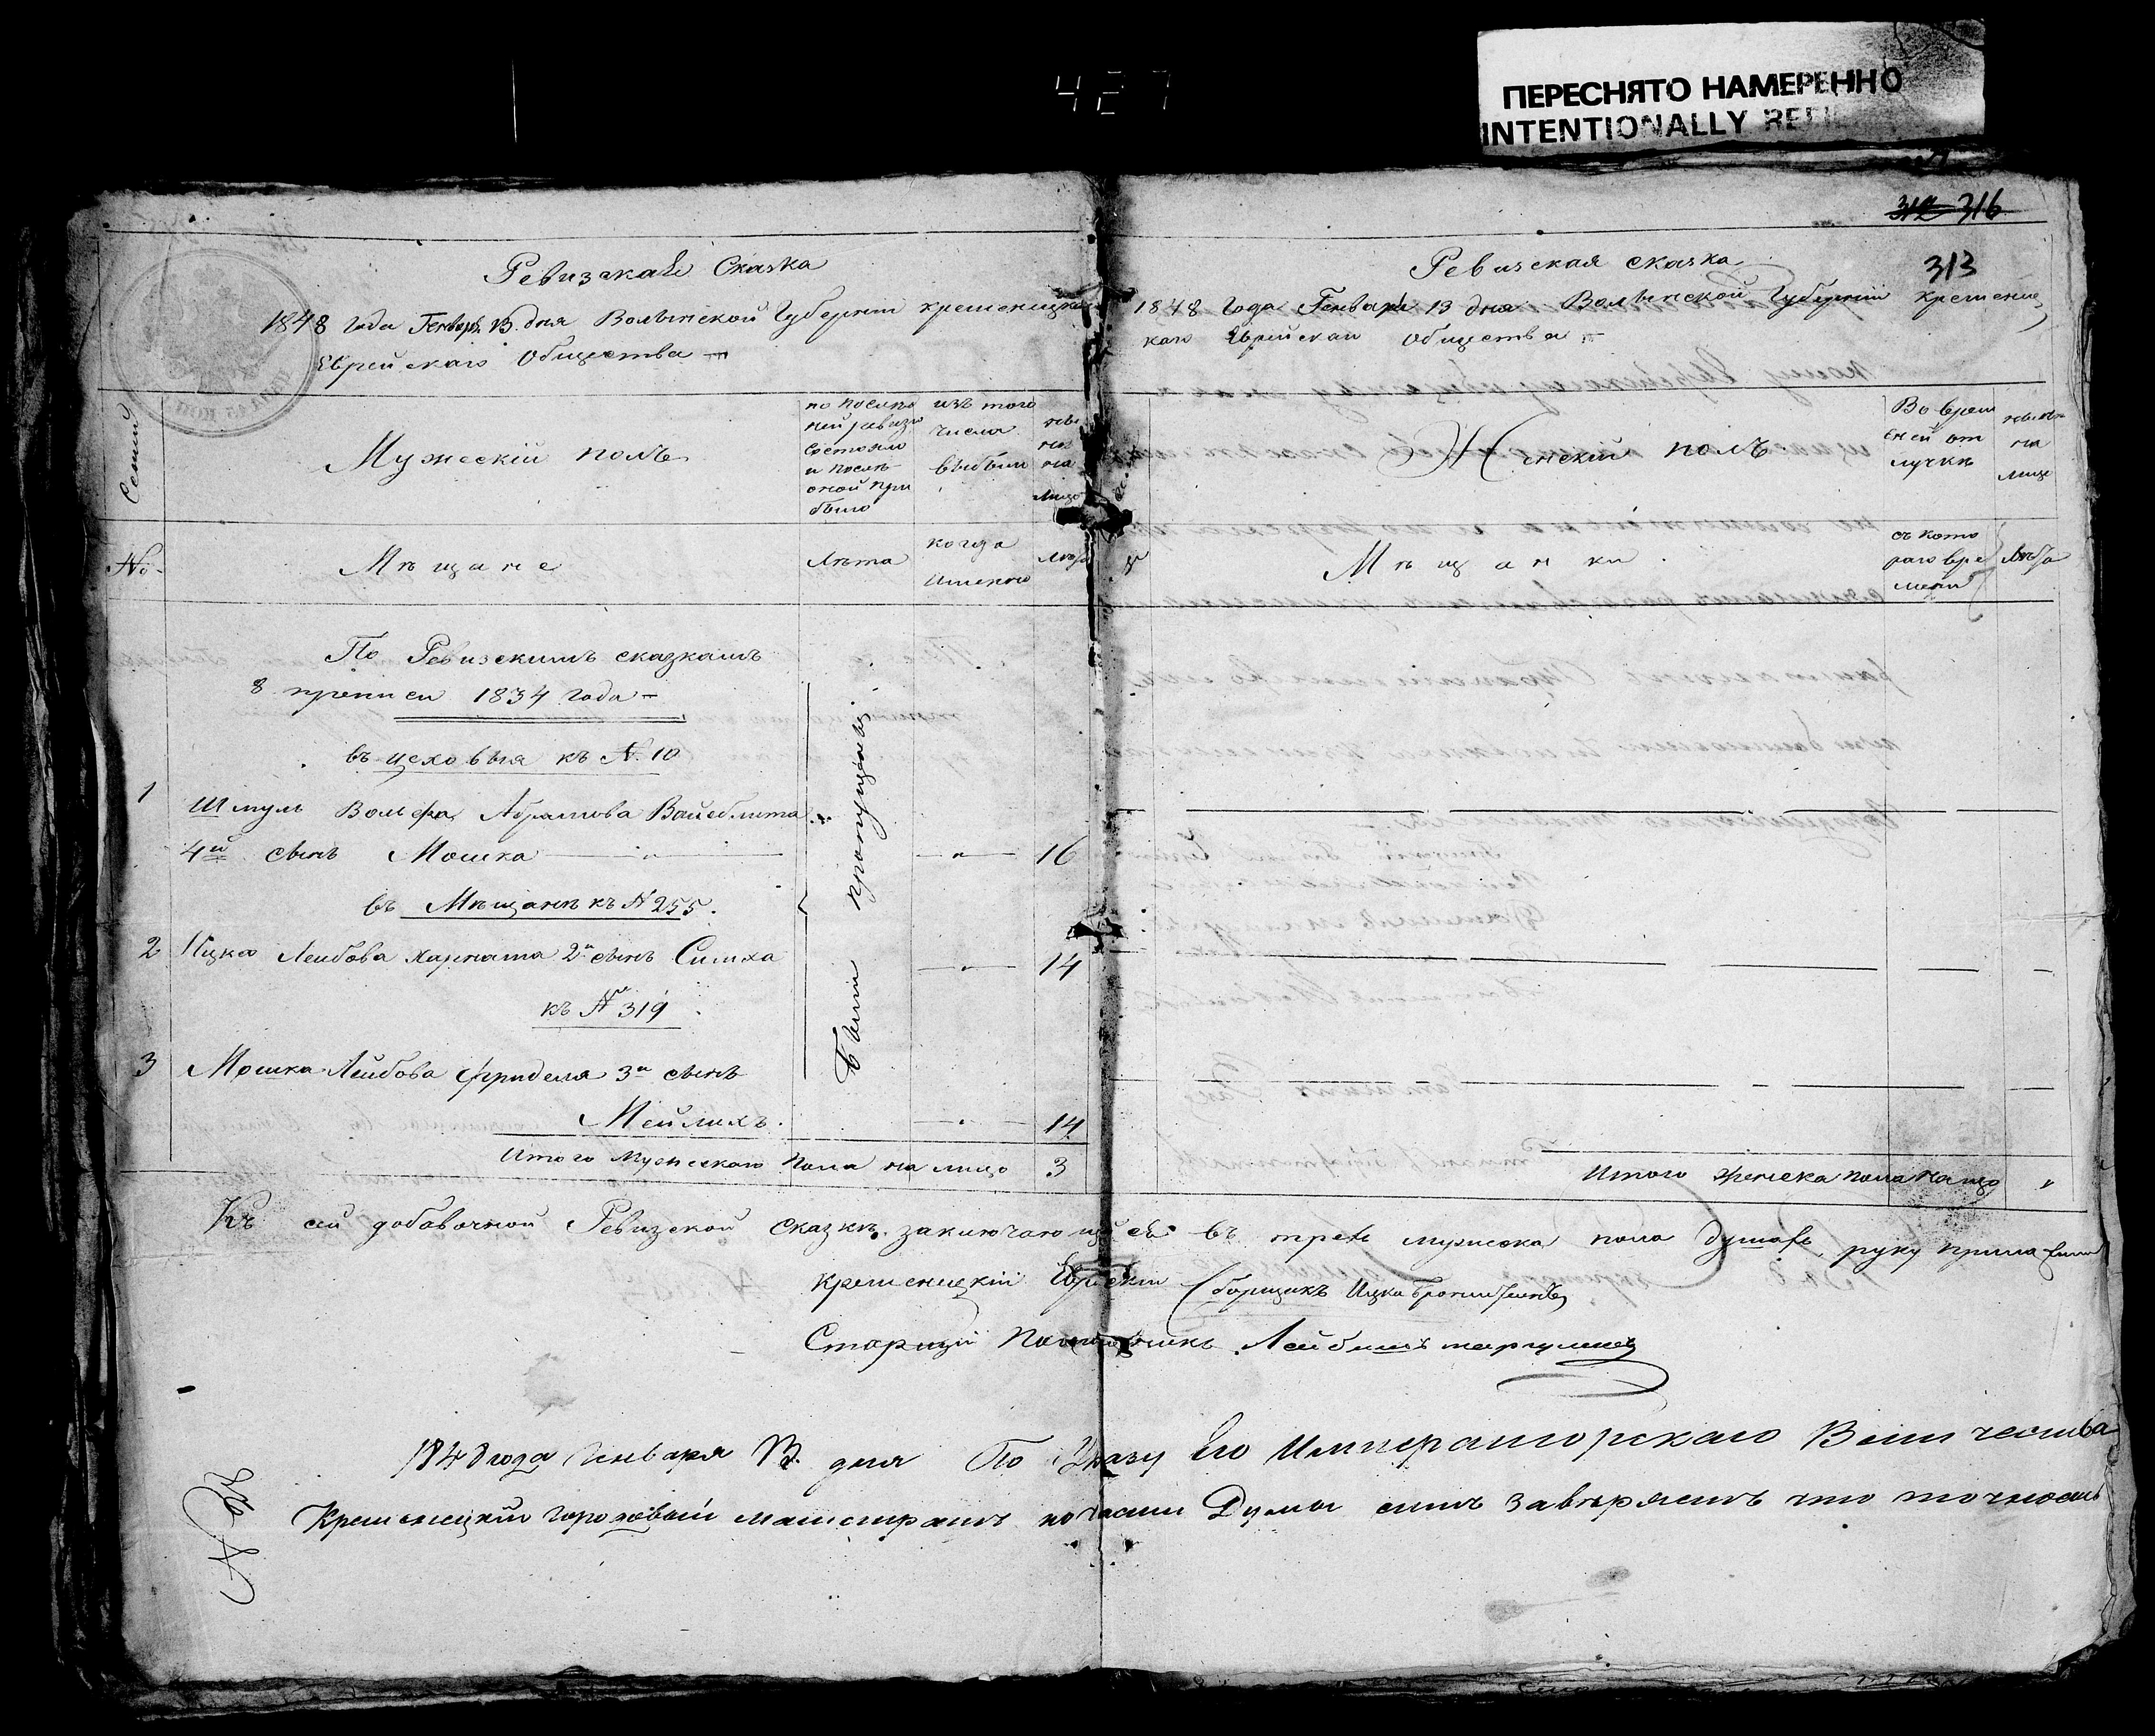 427
ПЕРЕСНЯТО НАМЕРЕННО
INTENTIONALLY
312 316
313
Ревизская Сказка
1848 года Генваря 13 дня Волынской Губерніи кременецка
Еврейскаго Общества
Семьи
Мужескій полъ
по послѣд
ней ревизіи
состояло
и послѣ
оной при
было
изъ того
числа
выбыли
нынѣ
на
лицо
№
Мѣщане
Лѣта
когда
именно
Лѣта
По Ревизскимъ сказкамъ
8 преписи 1834 года
въ цеховыя къ № 10
1
Шмуль Вольфа Абрамова Вайсблита
4й сынъ Мошка 16
въ Мѣщанѣ къ № 255.
2 Ицка Леибова Харната 2й сынъ Симха 14
къ № 319
3 Мошка Леибова Фриделя 3й сынъ
Мейлихъ 14
Были пропущены
Итого Мужескаго пола на лицо 3
Ревизская сказка
1848 Года Генваря 13 дня Волынской Губерніи Кременец
каго Еврейскаго Общества
Женскій полъ
Во врем
еной от
лучкѣ
нынѣ
на
лице
Мѣщанки
съ кото
раго вре
мени
Лѣта
Итого женска пола на лицо
Къ сей добавочной Ревизской Сказкѣ заключающейся въ трехъ мужска пола душахъ руку приложили
кременецкій Еврейскій Сборщикъ Ицка
Старшій Помощникъ Лейбишъ
1848 года Генваря 13 дня По Указу Его Императорскаго Величества
Кременецкій городовый магистратъ по части Думы симъ завѣряетъ что точность
№